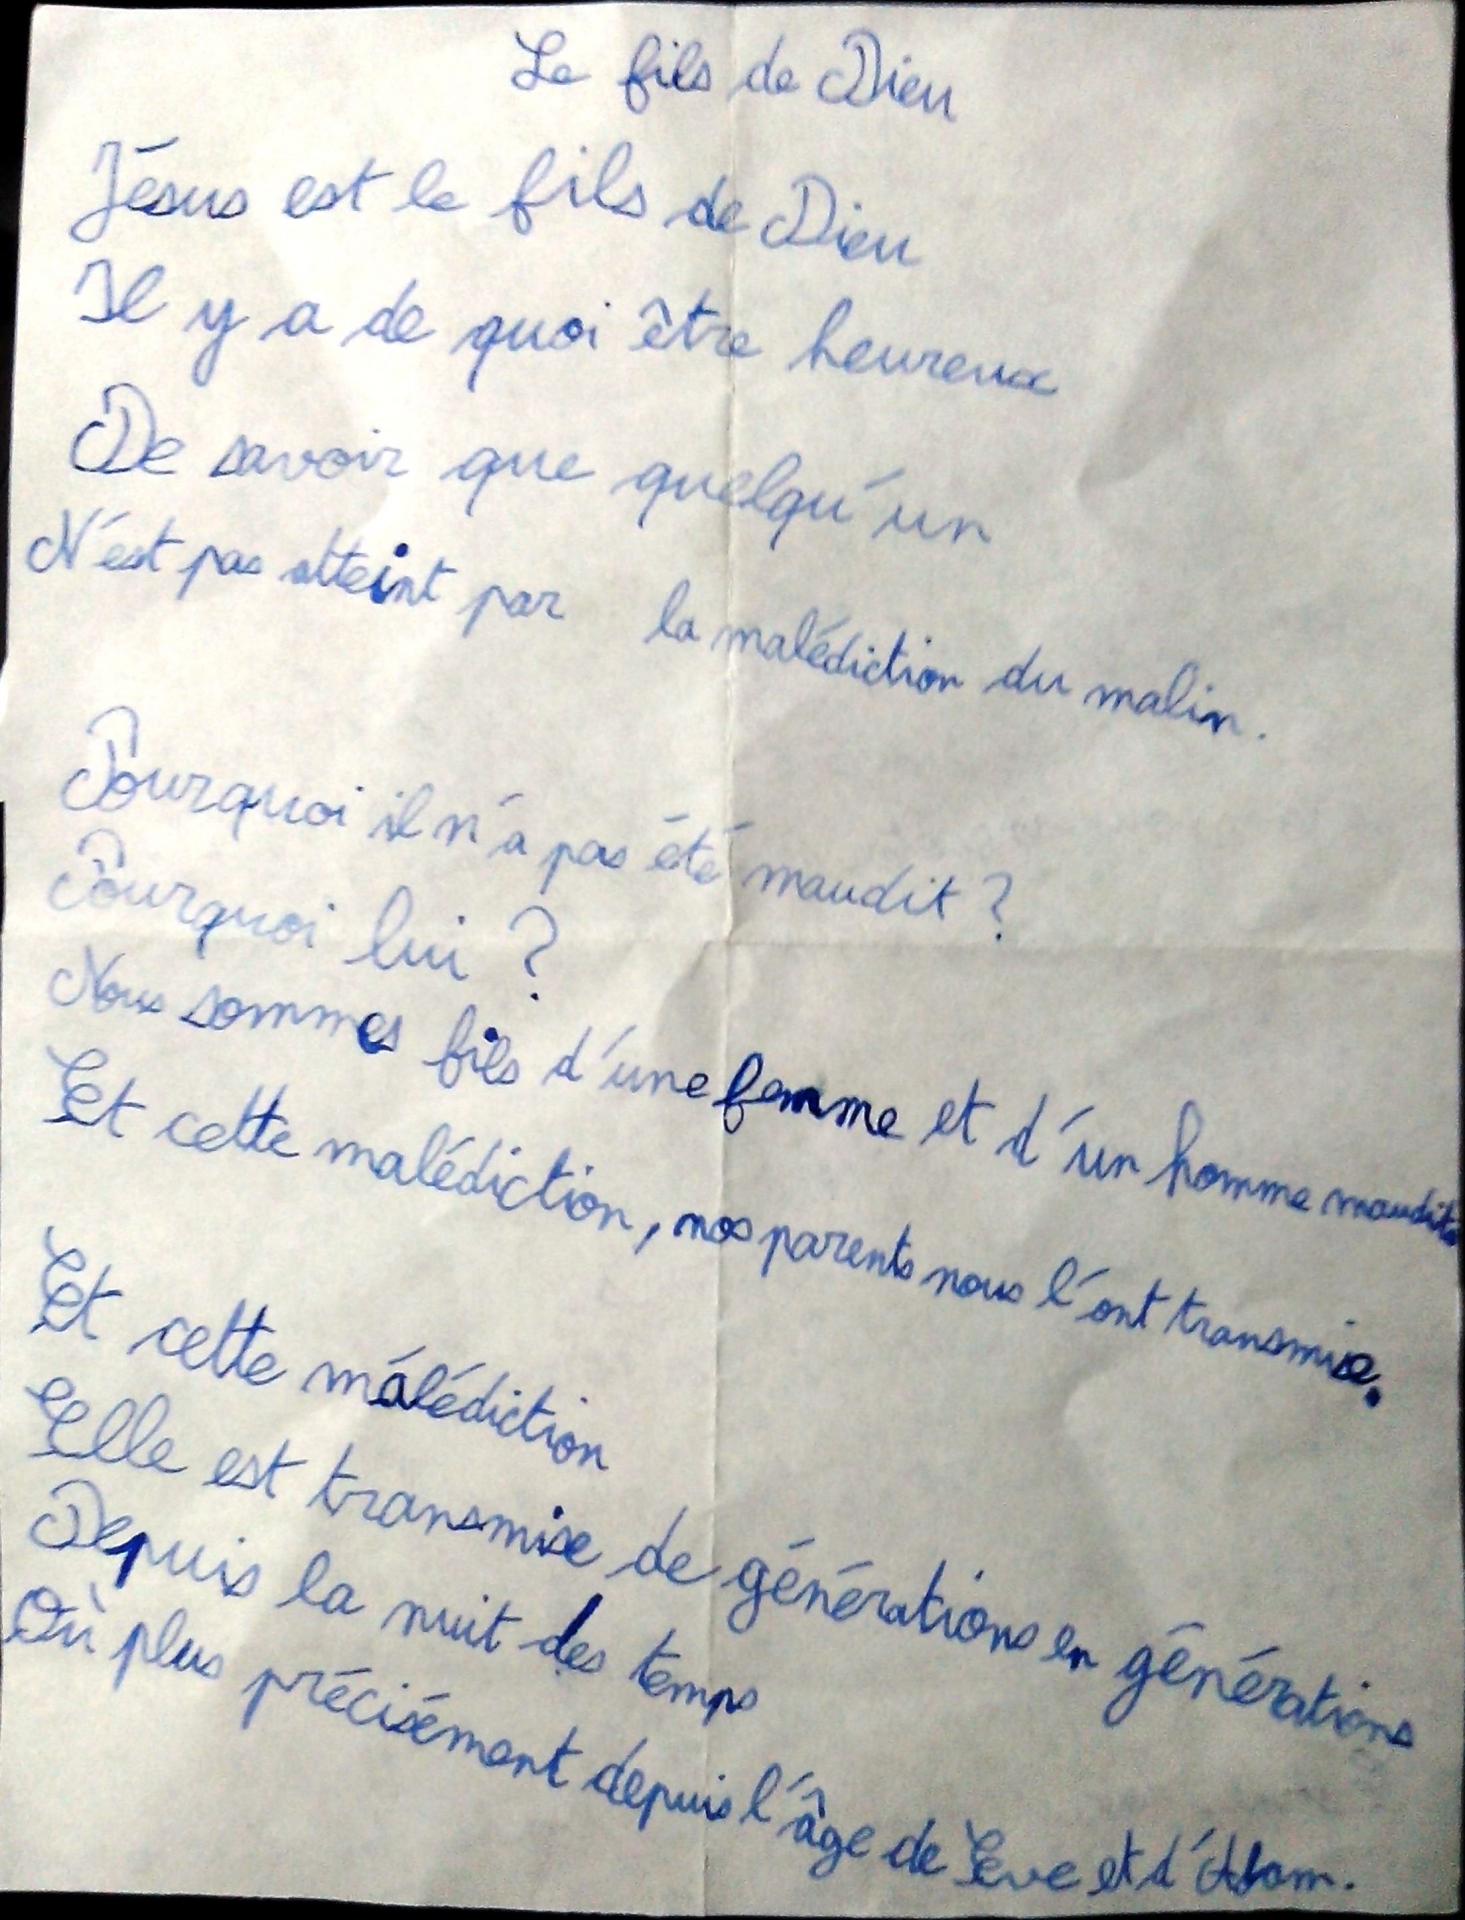 Le fils de Dieu
Jésus est le fils de Dieu
Il y a de quoi être heureux
De savoir que quelqu'un
N'est pas atteint par la malédiction du malin.
Pourquoi il n'a pas été maudit ?
Pourquoi lui ?
Nous sommes fils d'une femme et d'un homme maudits
Et cette malédiction, nos parents nous l'ont transmise.
Et cette malédiction
Elle est transmise de générations en générations
Depuis la nuit des temps
Où plus précisément depuis l'âge de Eve et d'Adam.